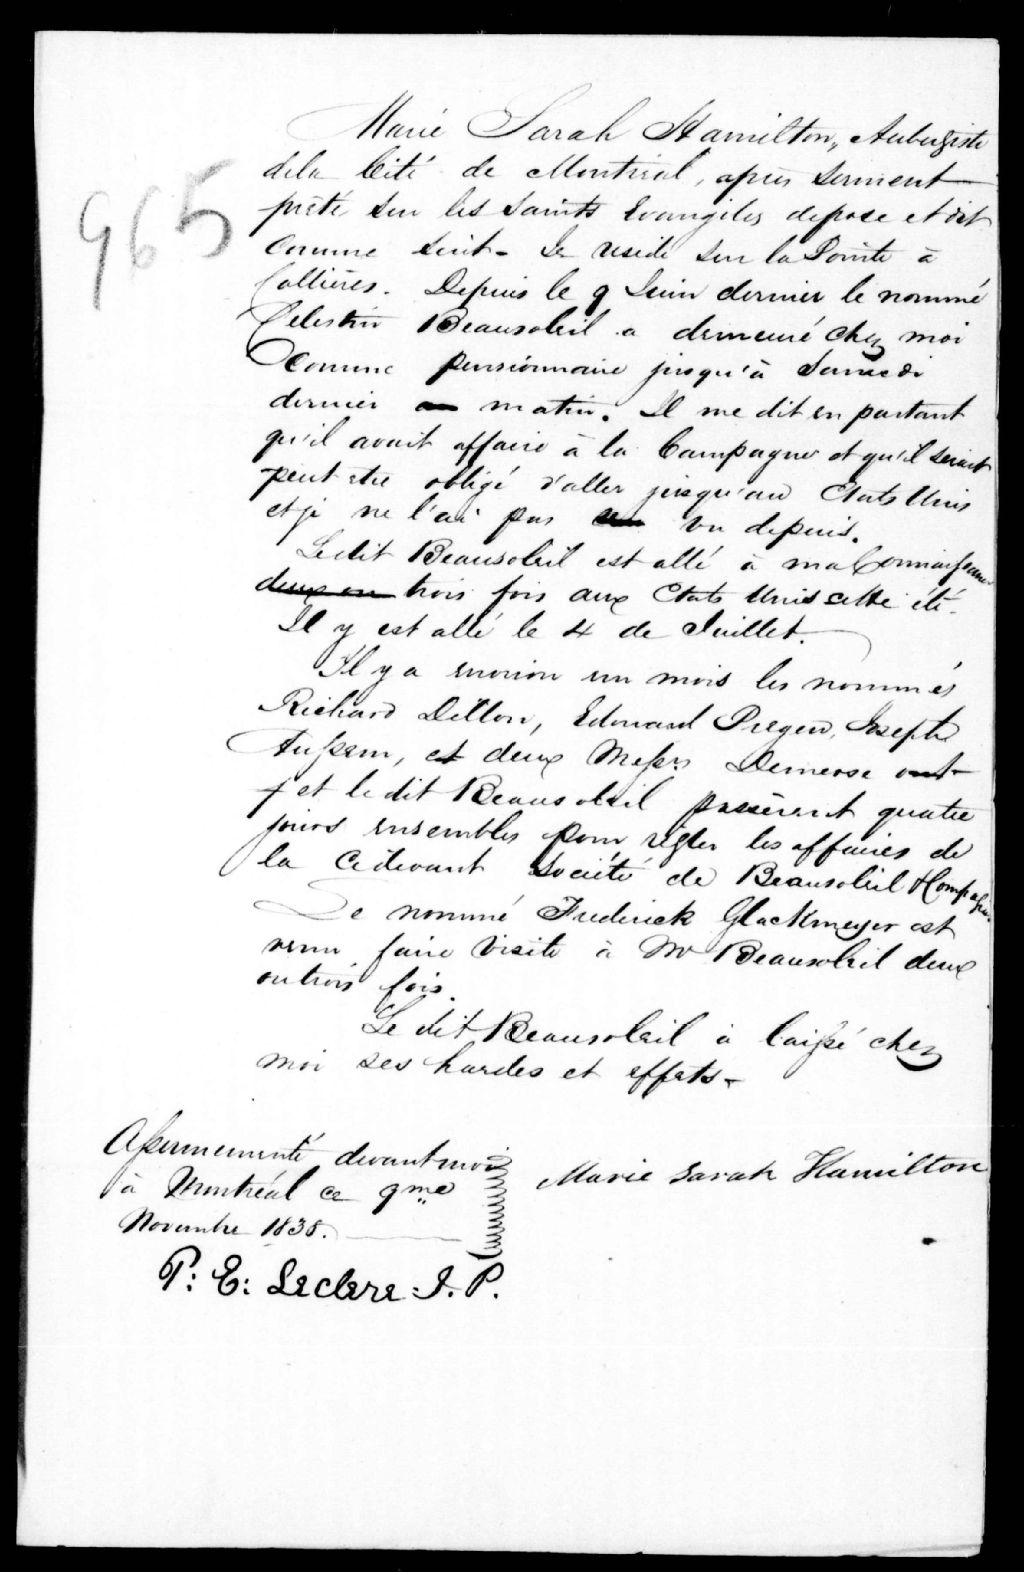 965
Marie Sarah Hamilton, Aubergiste
de la Cité de Montréal, après serment
prêté sur les saints Evangiles depose et dit
comme suit - Je reside sur la Pointe à
Callières. Depuis le 9 Juin dernier le nommé
Celestin Beausoleil a demeuré chez moi
comme pensionnaire jusqu'à Samedi
dernier matin. Il me dit en partant
qu'il avait affaire à la Campagne et qu'il serait
peut etre obligé d'aller jusqu'au Etats Unis
et je ne l'ai pas vu depuis.
Le dit Beausoleil est allé à ma Connaissance
deux ou trois fois aux Etats Unis cette été.
Il y est allé le 4 de Juillet.
Il y a environ un mois les nommés
Richard Dillon, Edouard Joseph
et deux Messrs Demerse
et le dit Beausoleil passèrent quatre
jours ensembles pour régler les affaires de
la Cidevant Société de Beausoleil & Compagnie.
Le nommé Frederick Glackmeyer est
venu faire visite à Mr Beausoleil deux
ou trois fois.
Le dit Beausoleil à laissé chez
moi ses hardes et effets -
Assermementé devant moi
à Montréal ce 9me
Novembre 1838.
Marie Sarah Hamilton
P: E: Leclere J. P.